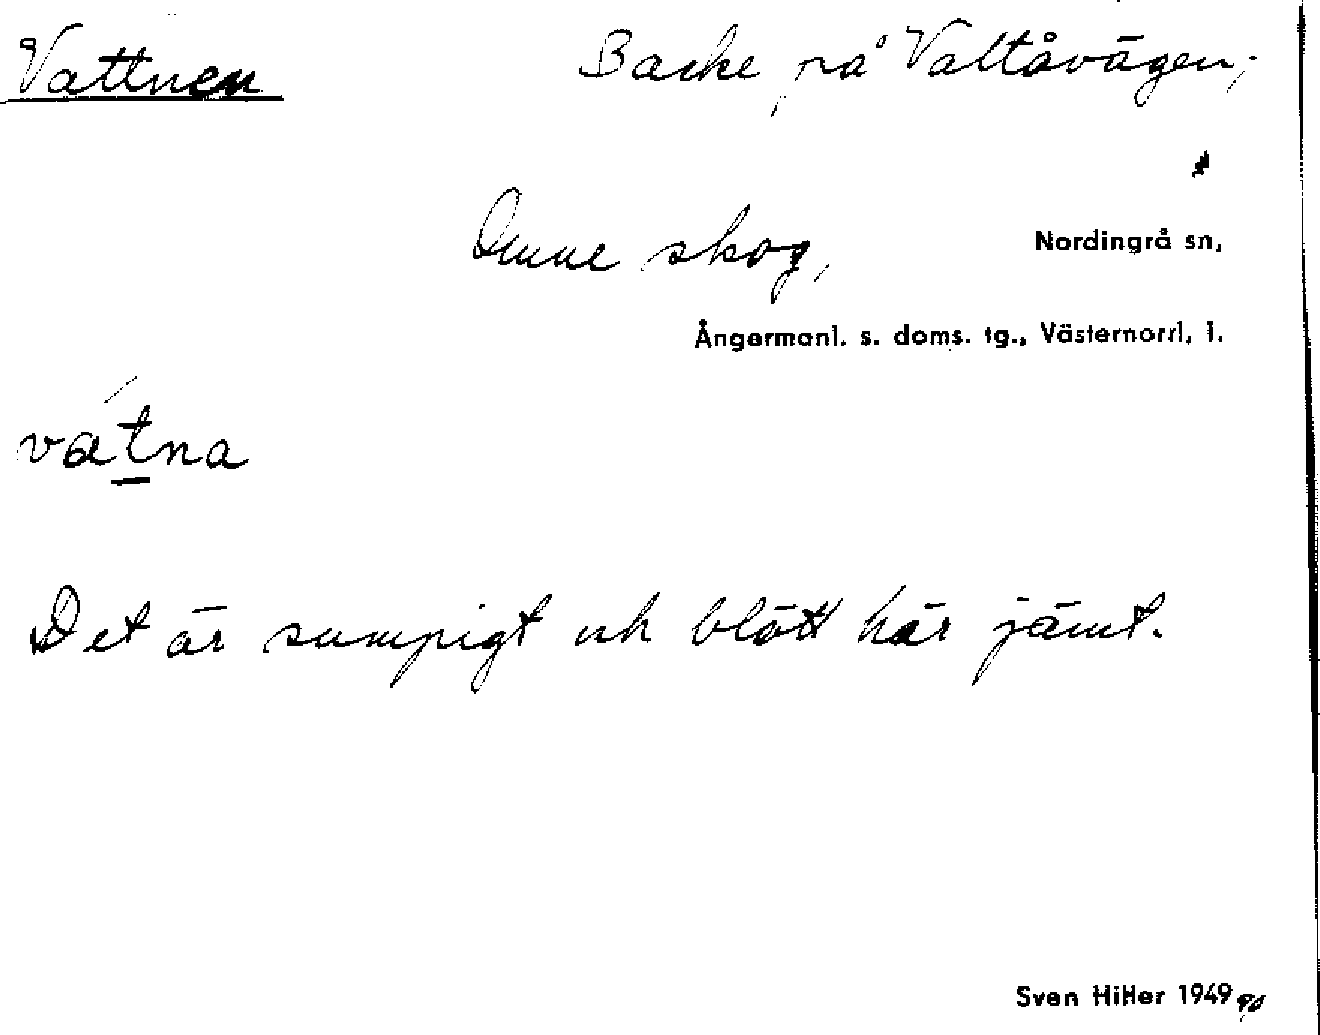 Vattnen Backe på Valtåvägen,
Omne skog, Nordingrå sn,
Ångermanl. s. doms. tg., Västernorrl. l.
vátna
Det är sumpigt och blött här jämt.
Sven Hiller 1949